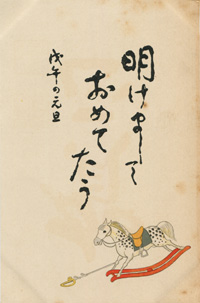 明けまして
おめで
たう
戊午の元旦